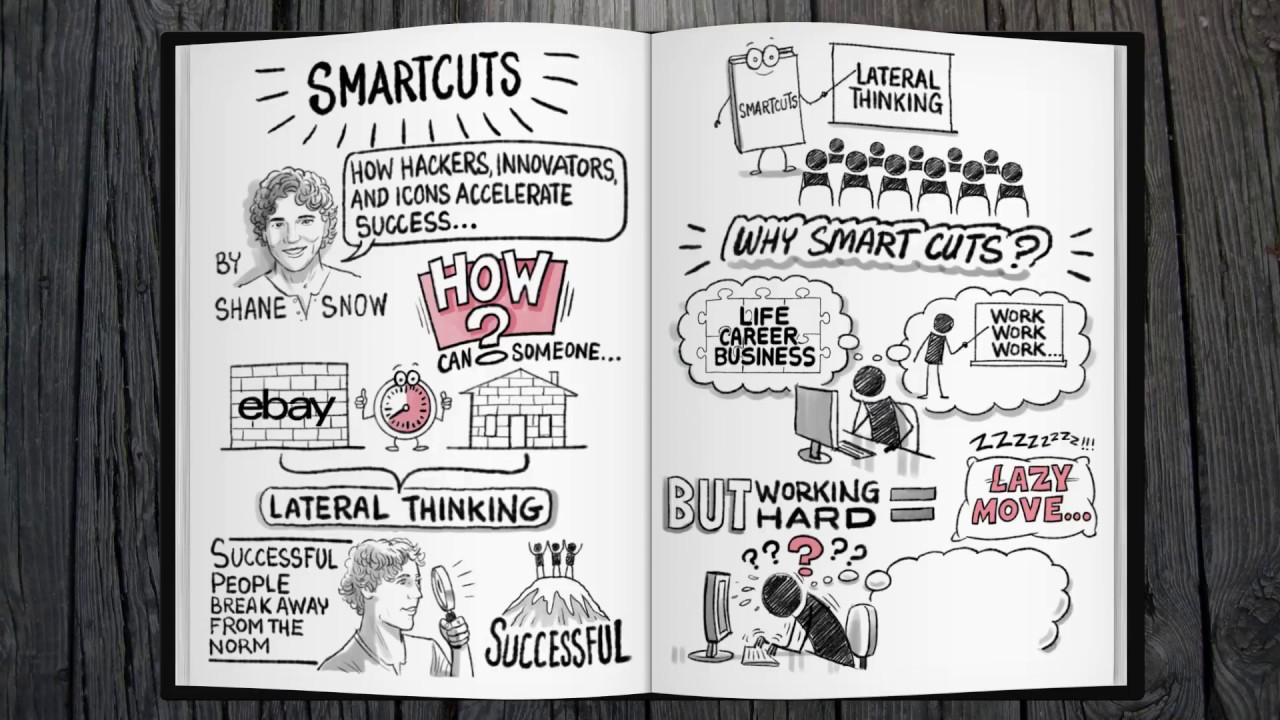 SMARTCUTS
HOW HACKERS, INNOVATORS,
AND ICONS ACCELERATE
SUCCESS...
BY
SHANE SNOW
HOW
?
CAN SOMEONE...
ebay
LATERAL THINKING
SUCCESSFUL
PEOPLE
BREAK AWAY
FROM THE
NORM
SUCCESSFUL
SMARTCUTS
LATERAL
THINKING
WHY SMART CUTS?
LIFE
CAREER
BUSINESS
WORK
WORK
WORK...
ZZZZZZZZ!!!
BUT WORKING
HARD =
LAZY
MOVE...
?????